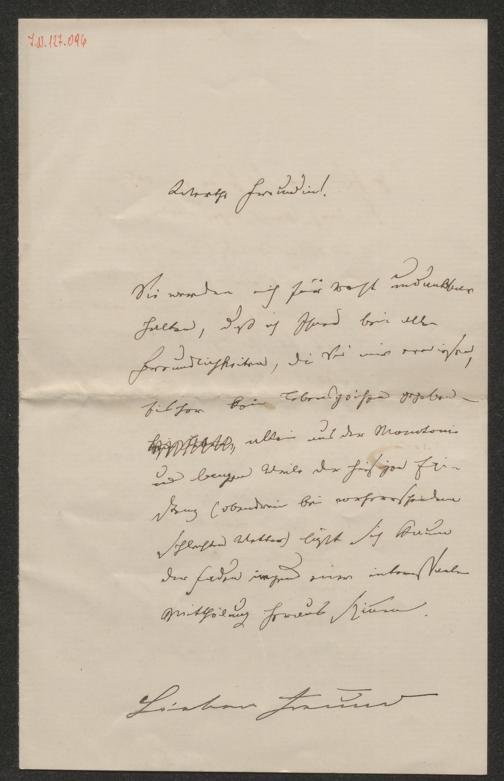 I.N. 127.096
Werthe Freundin!
Sie werden mich für recht undankbar
halten, daß ich Ihnen bei allen
Freundlichkeiten, die Sie mir erwiesen,
bisher kein Lebenszeichen gegeben
allein aus der Monotonie
und langen Weile der hiesigen
(obendrein bei vorherrschenden
schlechten Wetter) läßt sich kaum
der Faden irgend einer interessanten
Mittheilung heraus
Lieber Freund